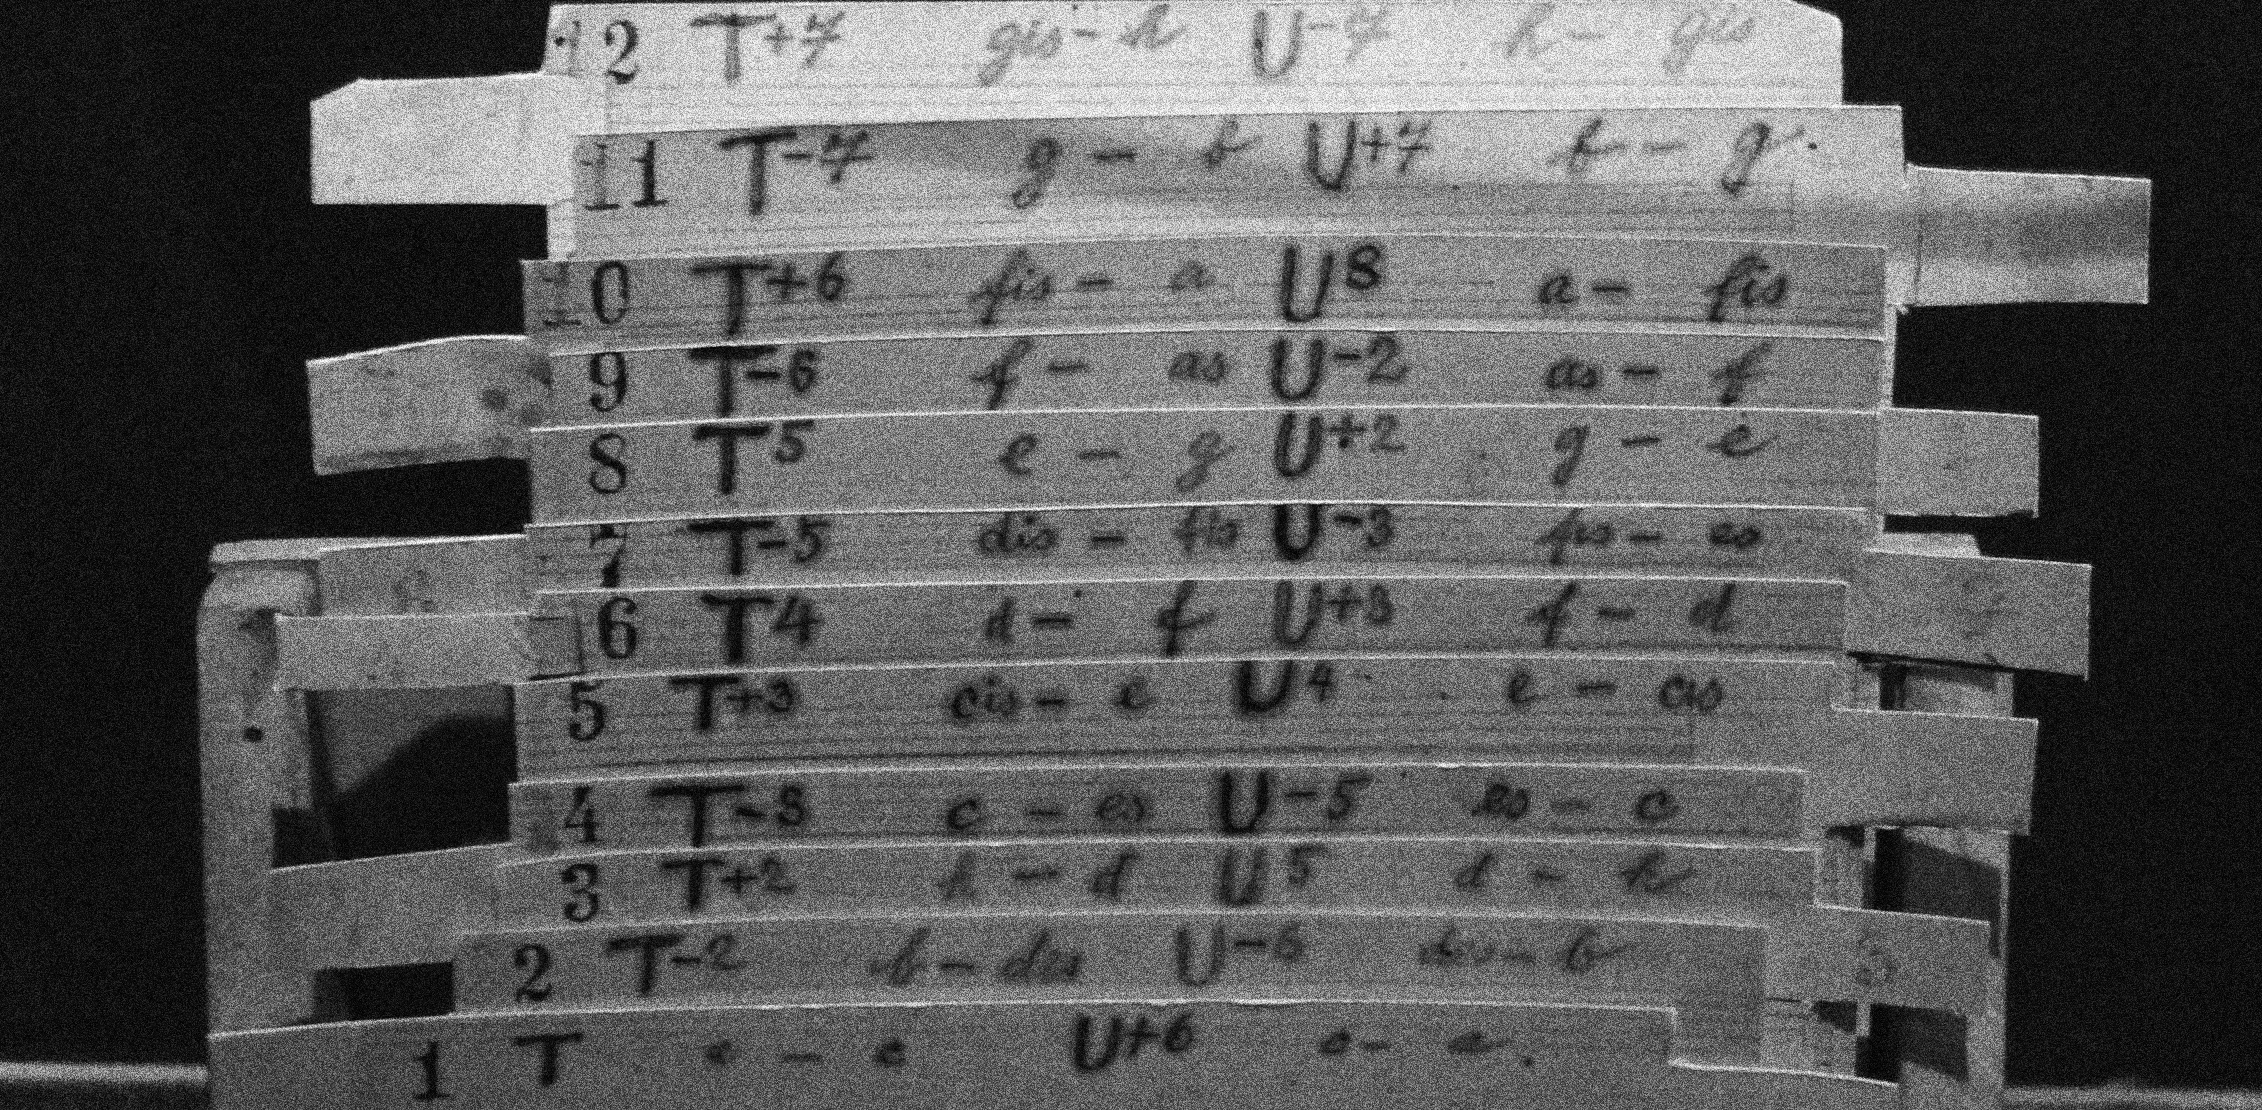 12 T+7 gis - h U-7 h - gis
11 T-7 g - b U+7 b - g.
10 T+6 fis - a U8 a - fis
9 T-6 f - as U-2 as - f
8 T5 e - g U+2 g - e
7 T-5 dis - fis U-3 fis - es
6 T4 d - f U+3 f - d
5 T+3 cis - e U4 e - cis
4 T-3 c - es U-5 es - c
3 T+2 h - d U5 d - h
2 T-2 b - des U-6 des - b
1 T - c U+6 c -